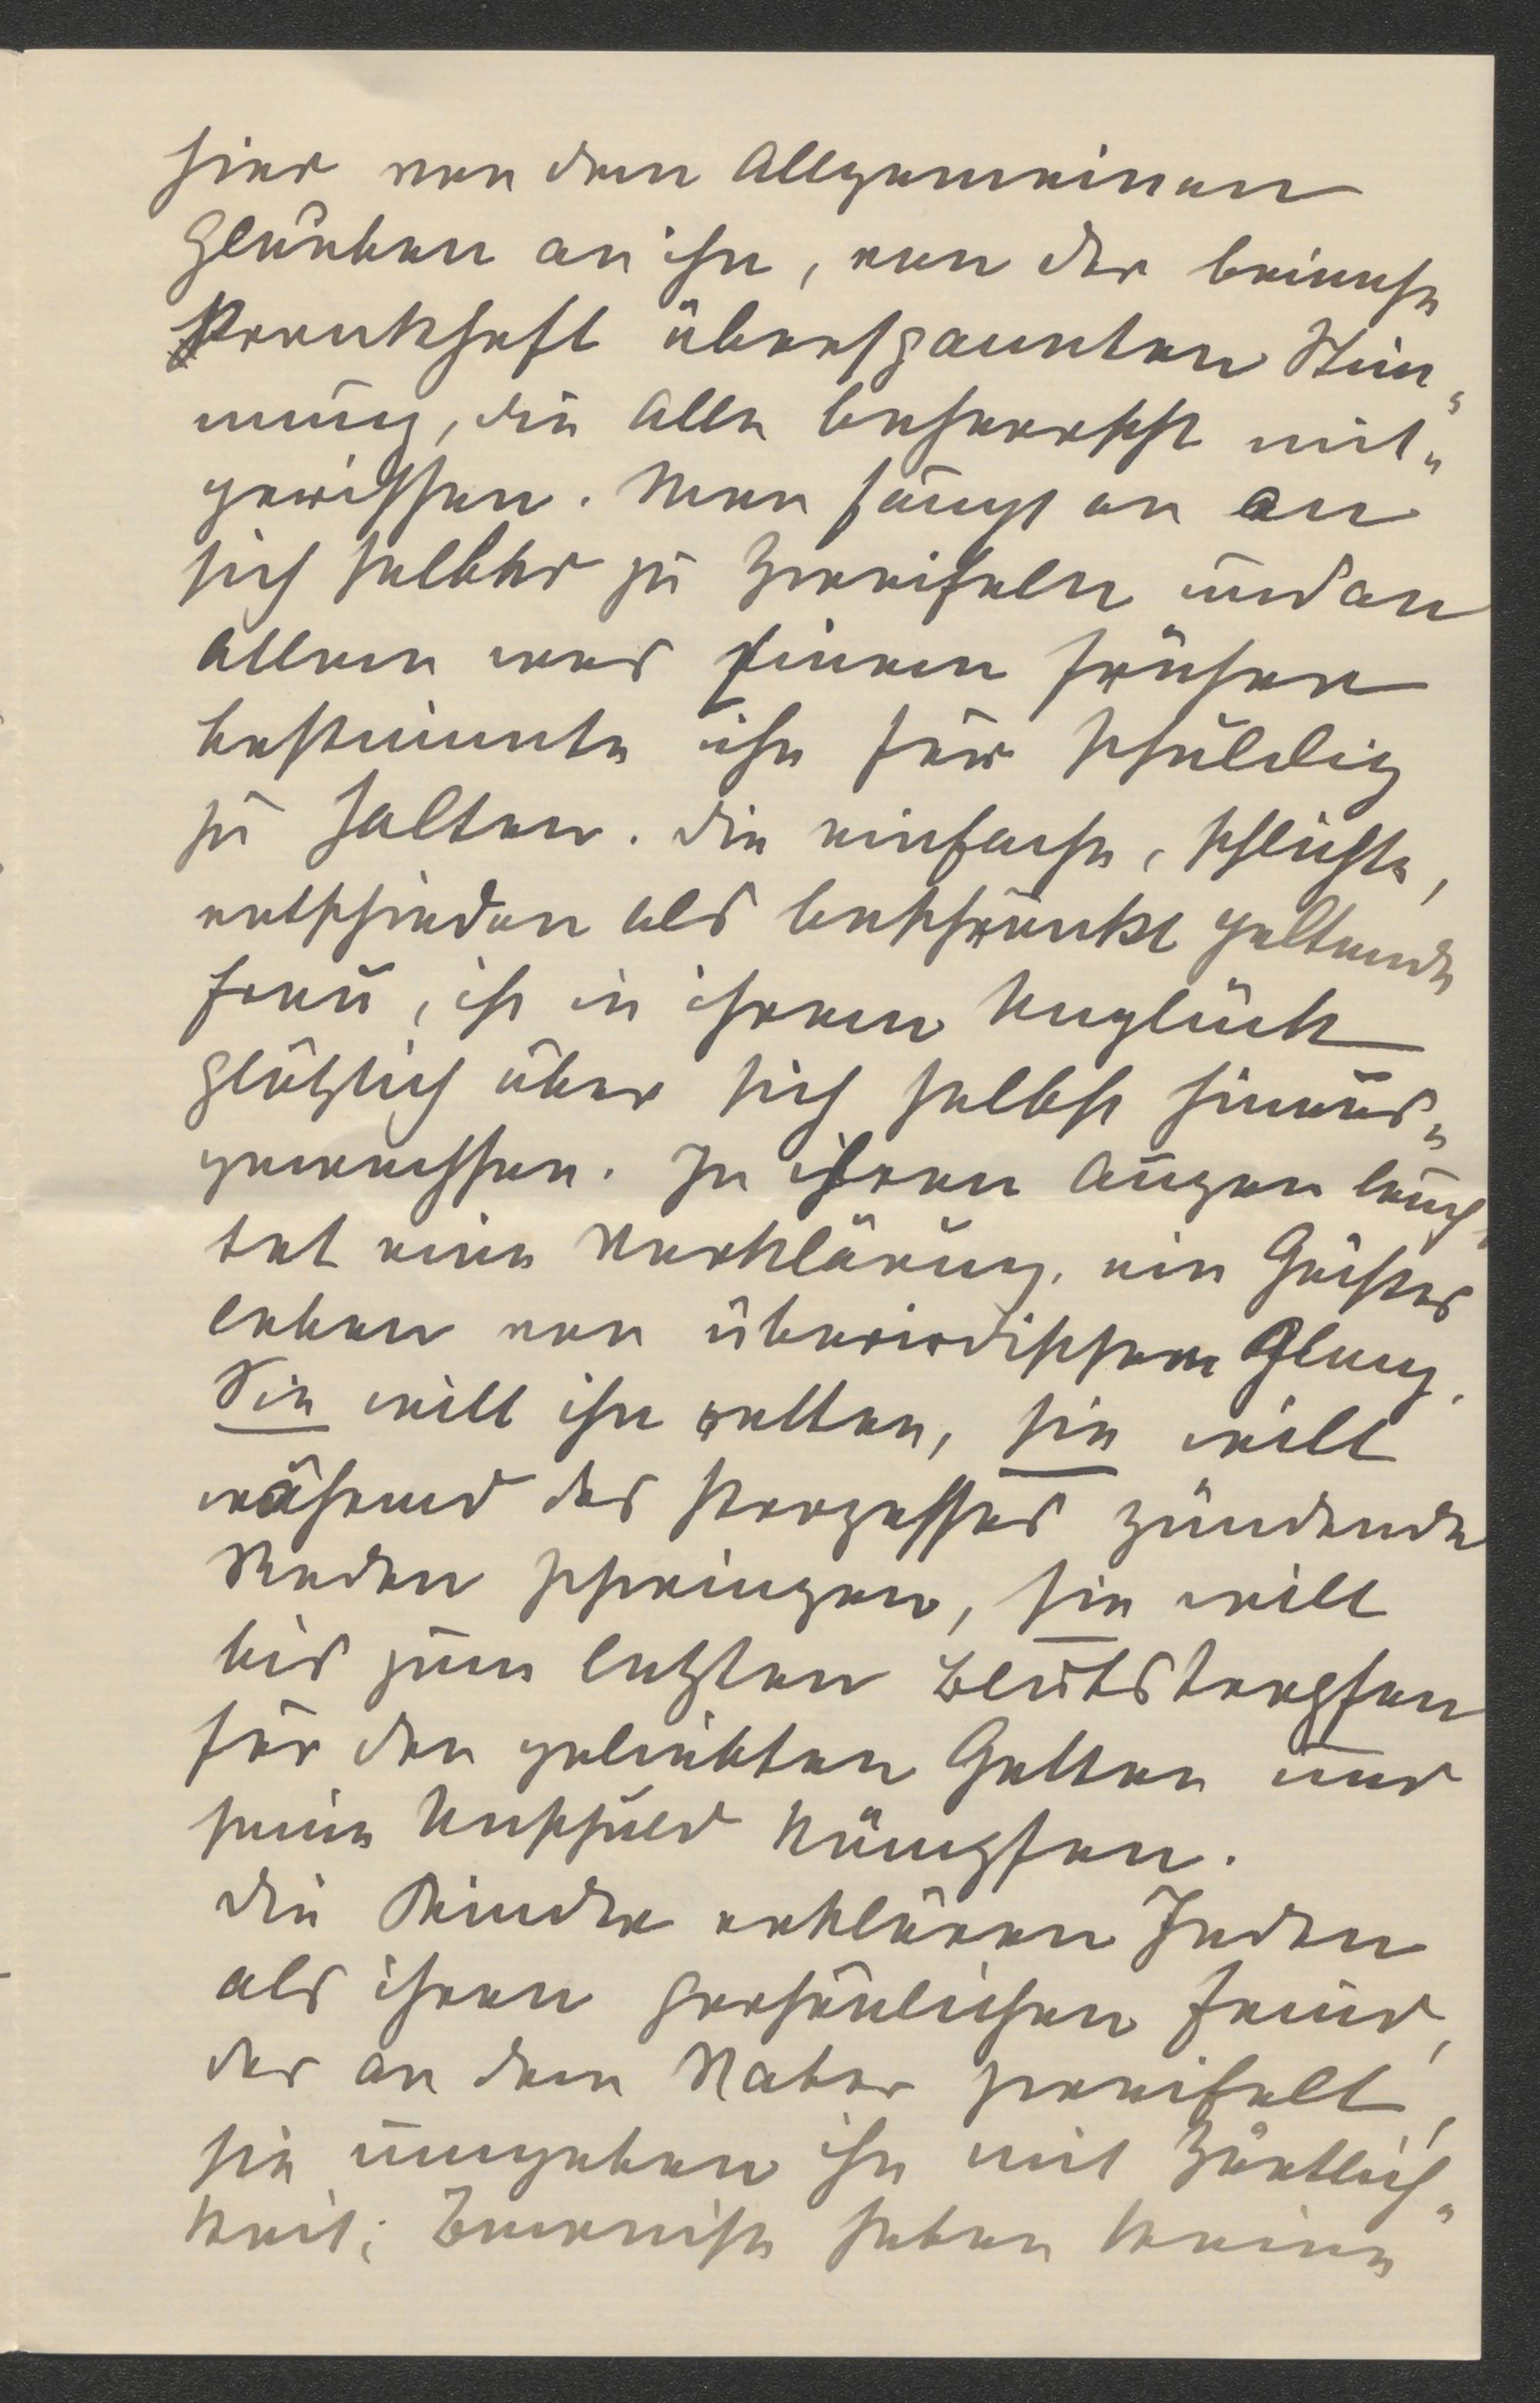 hier von dem Allgemeinen
Glauben an ihn, von der beinahe
krankhaft überspannten Stim„
mung, die Alle beherrscht mit„
gerissen. Man fängt an an
sich selbst zu zweifeln und an
Allem was einen früher
bestimmte ihn für schuldig
zu halten. Die einfache, schlichte,
entschieden als beschränkt geltende
Frau, ist in ihrem Unglück
plötzlich über sich selbst hinaus„
gewachsen. In ihren Augen leuch„
tet eine Verklärung, ein Geister
leben von überirdischem Glanz.
Sie will ihn retten, sie will
während des Prozesses zündende
Reden schwingen, sie will
bis zum letzten Blutstropfen
für den geliebten Gatten und
seine Unschuld kämpfen.
Die Kinder erklären Jeden
als ihren persönlichen Feind,
der an dem Vater zweifelt,
sie umgeben ihn mit Zärtlich„
keit; Beweise haben keine